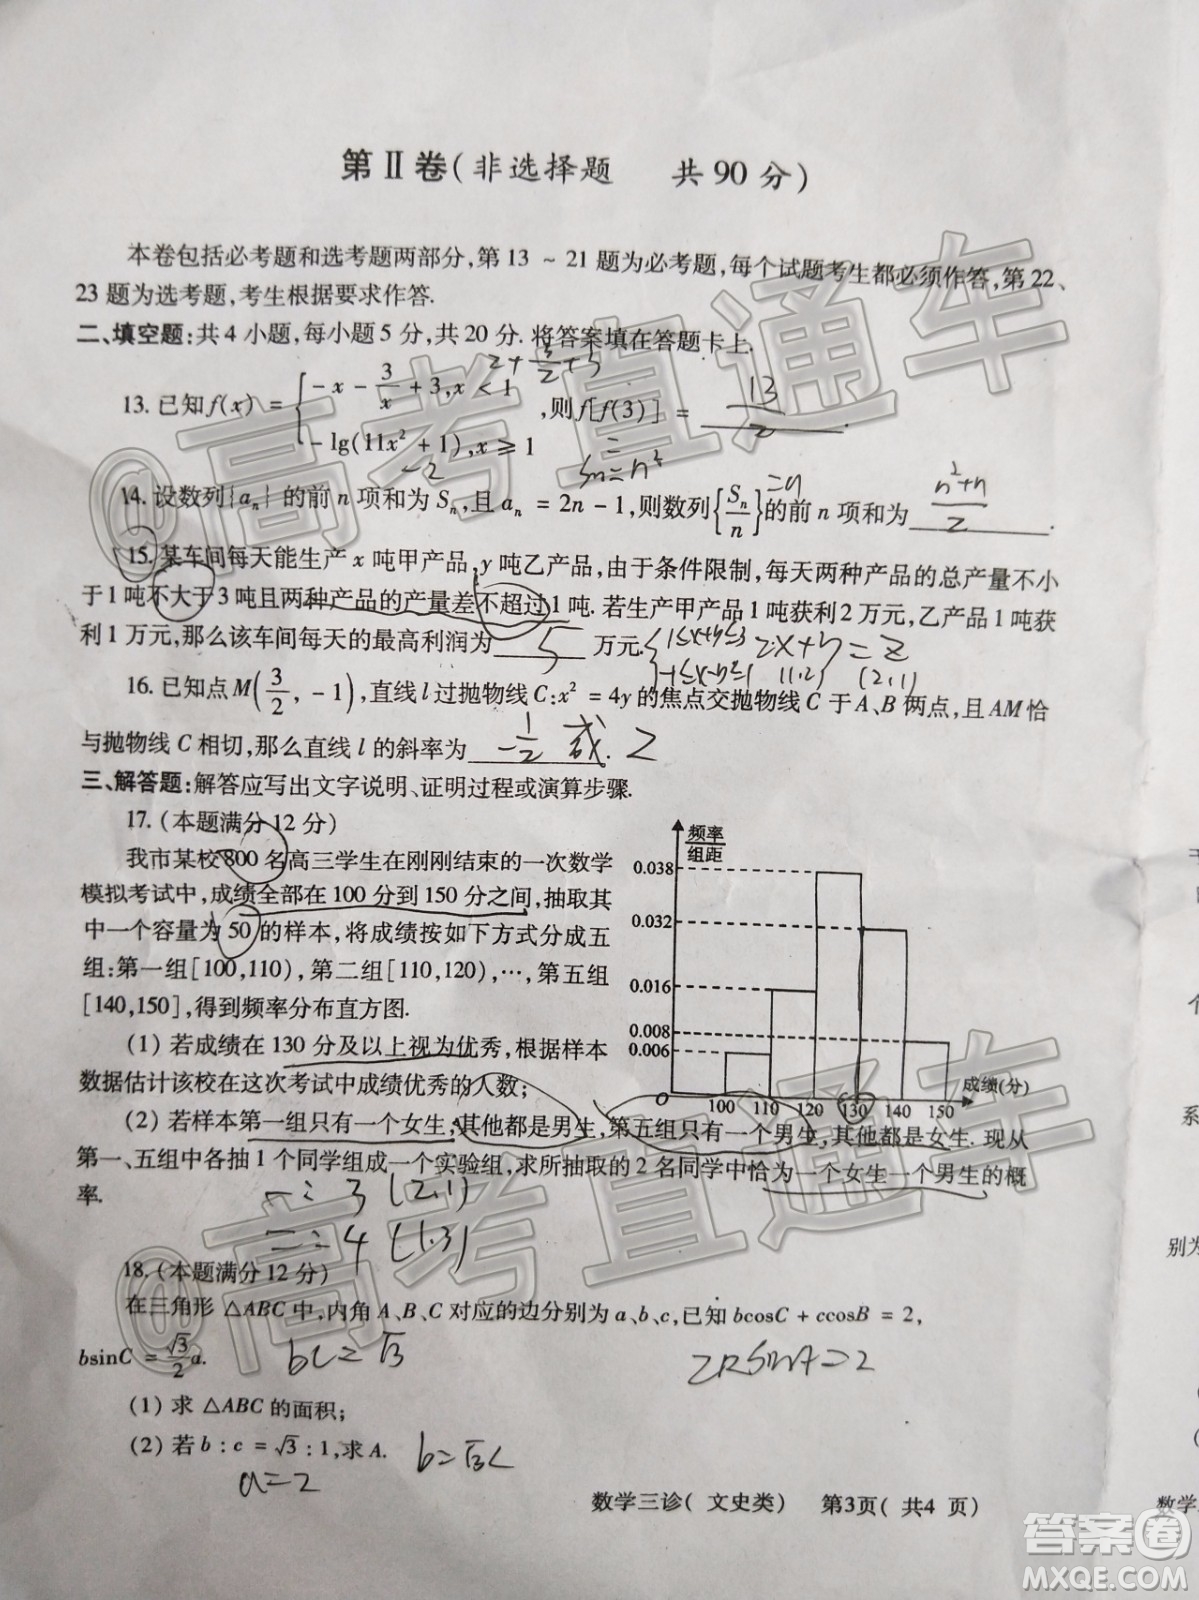 第Ⅱ卷(非选择题 共90分)
本卷包括必考题和选考题两部分,第13～21题为必考题,每个试题考生都必须作答,第22、
23题为选考题,考生根据要求作答.
二、填空题:共4小题,每小题5分,共20分.将答案填在答题卡上.
2+3/2+3
13.已知f(x)={-x-3/x+3,x<1 ,则f[f(3)]=13/2.
-lg(11x²+1),x≥1
-2
Sn=n²
=n
14.设数列{aₙ}的前n项和为Sₙ,且aₙ=2n-1,则数列{Sₙ/n}的前n项和为 n²+n/2 .
15.某车间每天能生产x吨甲产品,y吨乙产品,由于条件限制,每天两种产品的总产量不小
于1吨不大于3吨且两种产品的产量差不超过1吨.若生产甲产品1吨获利2万元,乙产品1吨获
利1万元,那么该车间每天的最高利润为 5 万元.
{1≤x+y≤3 2x+y=z
-1≤x-y≤1 (1,2) (2,1)
16.已知点M(3/2,-1),直线l过抛物线C:x²=4y的焦点交抛物线C于A、B两点,且AM恰
与抛物线C相切,那么直线l的斜率为 -1/2 或.2
三、解答题:解答应写出文字说明、证明过程或演算步骤.
17.(本题满分12分)
我市某校800名高三学生在刚刚结束的一次数学
模拟考试中,成绩全部在100分到150分之间,抽取其
中一个容量为50的样本,将成绩按如下方式分成五
组:第一组[100,110),第二组[110,120),…,第五组
[140,150],得到频率分布直方图.
(1)若成绩在130分及以上视为优秀,根据样本
数据估计该校在这次考试中成绩优秀的人数;
频率
组距
0.038
0.032
0.016
0.008
0.006
O 100 110 120 130 140 150 成绩(分)
(2)若样本第一组只有一个女生,其他都是男生,第五组只有一个男生,其他都是女生.现从
第一、五组中各抽1个同学组成一个实验组,求所抽取的2名同学中恰为一个女生一个男生的概
率.
一:3 (2,1)
二:4 (1,3)
18.(本题满分12分)
在三角形△ABC中,内角A、B、C对应的边分别为a、b、c,已知bcosC+ccosB=2,
bsinC=√3/2a.
bc=√3
2RsinA=2
(1)求△ABC的面积;
(2)若b:c=√3:1,求A.
b=√3c
a=2
数学三诊(文史类) 第3页(共4页)
个
系
别为
数学三
@高考直通车
@高考直通车
答案圈
MXQE.COM